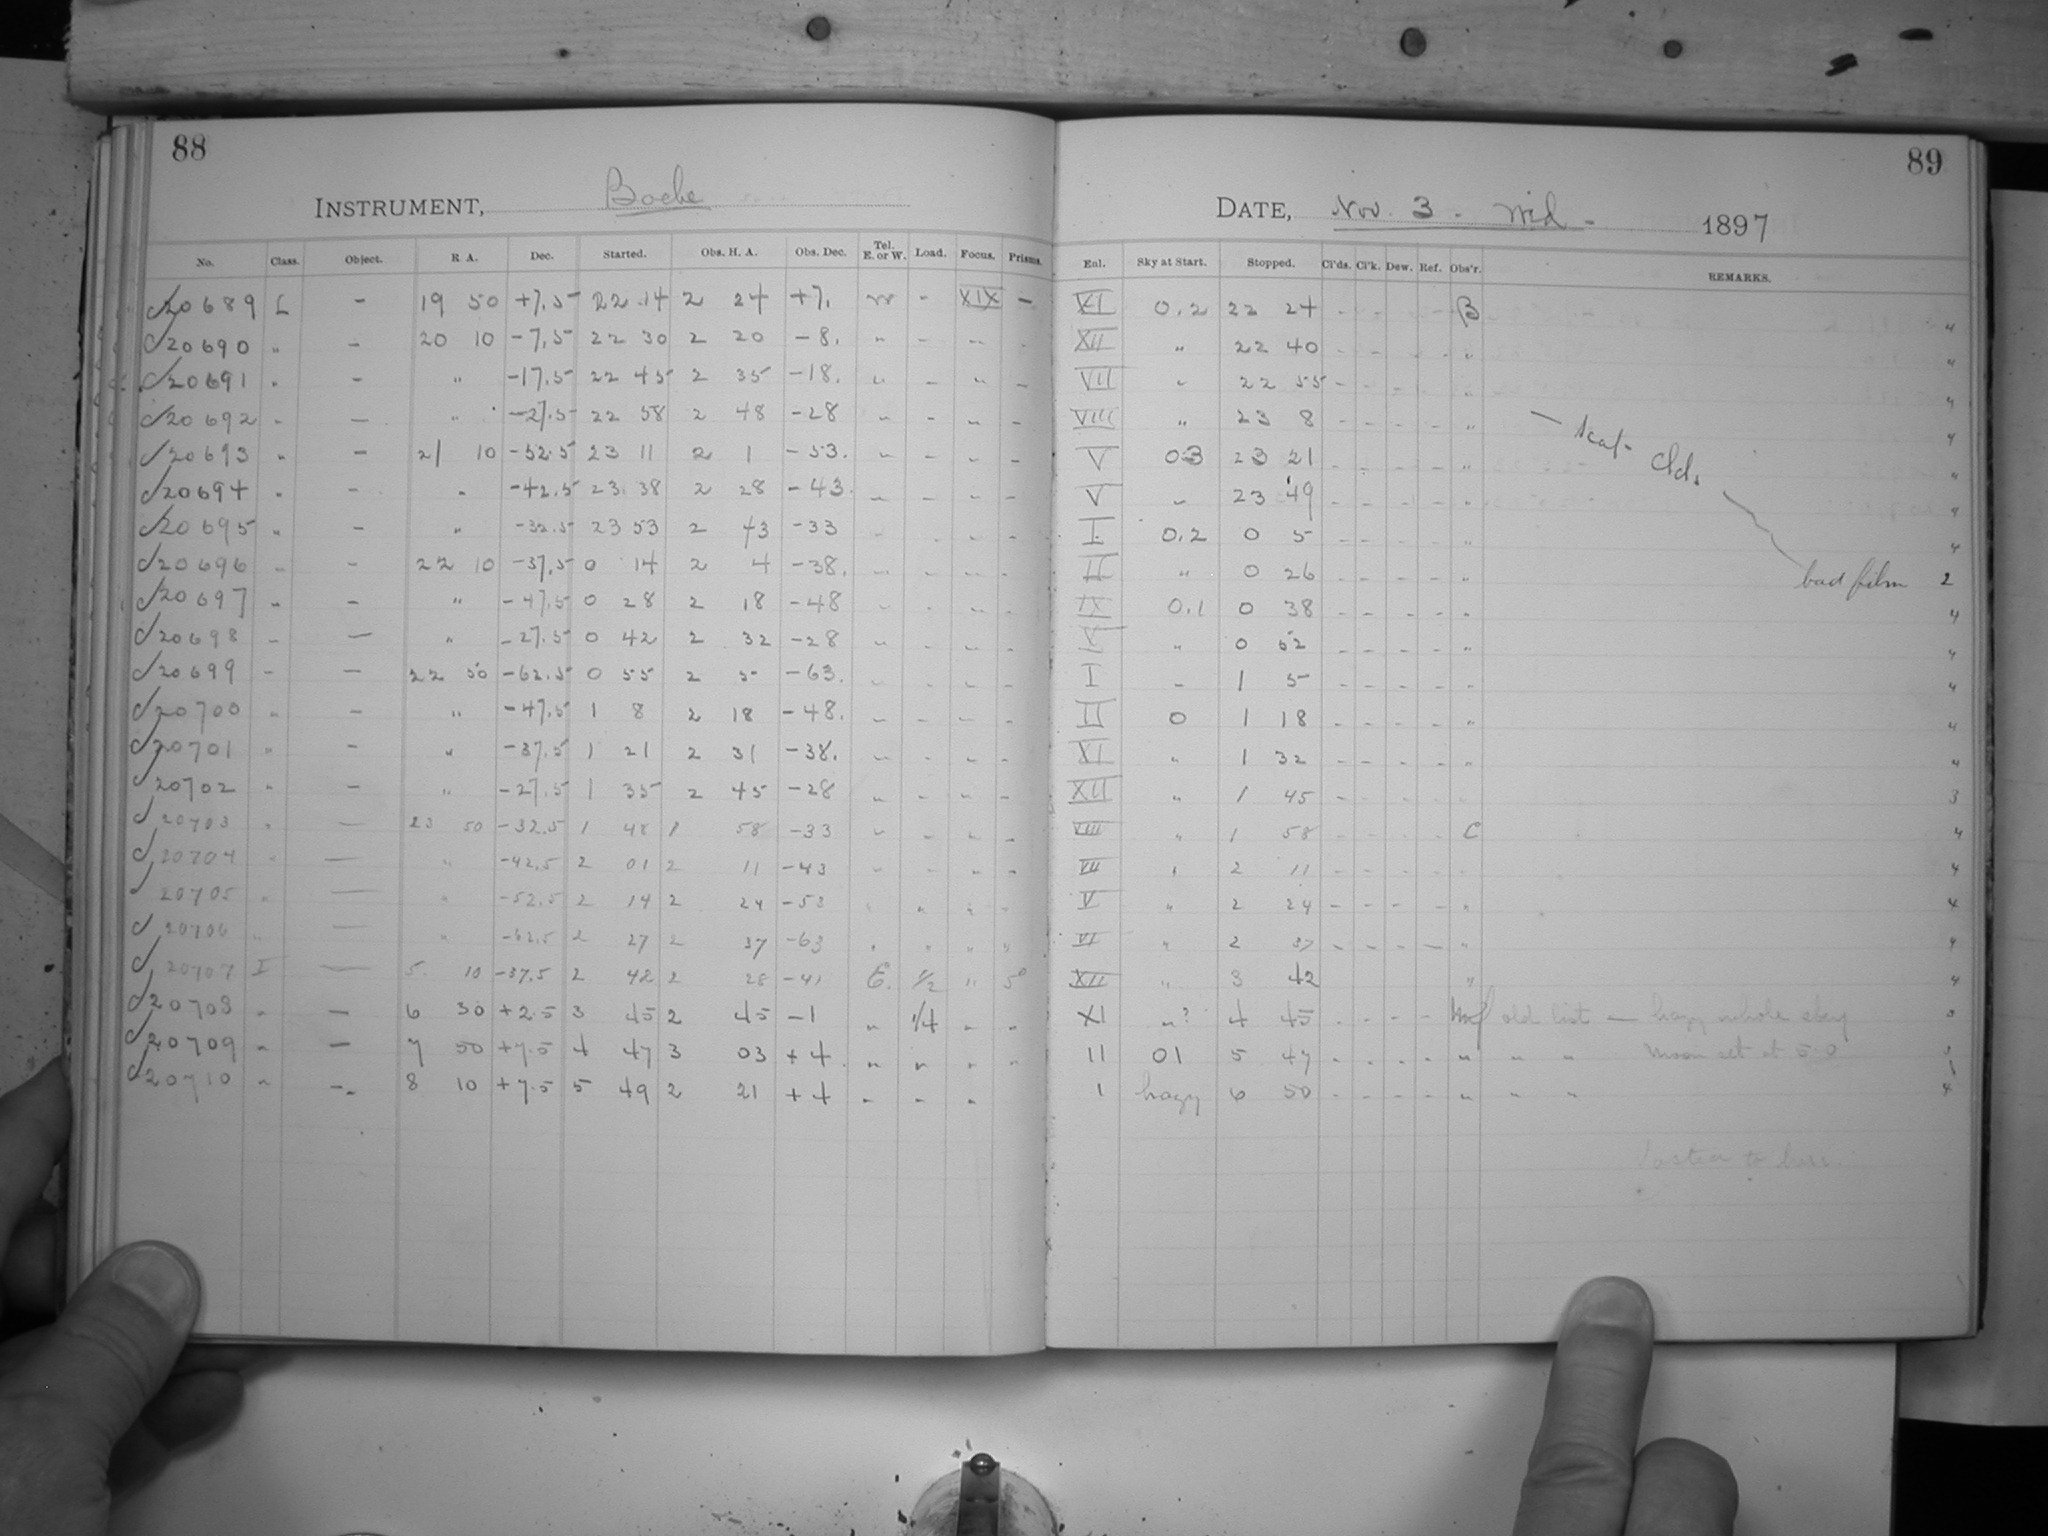 88
INSTRUMENT, Bache
No. Class. Object. R A. Dec. Started. Obs. H. A. Obs. Dec. Tel. E. or W. Load. Focus. Prisms.
20689 L - 19 50 +7.5 22 14 2 24 +7. W - XIX -
20690 " - 20 10 -7.5 22 30 2 20 -8. " - " -
20691 " - " -17.5 22 45 2 35 -18. " - " -
20692 " - " -27.5 22 58 2 48 -28 " - " -
20693 " - 21 10 -52.5 23 11 2 1 -53. " - " -
20694 " - " -42.5 23 38 2 28 -43. " - " -
20695 " - " -32.5 23 53 2 43 -33 " - " -
20696 " - 22 10 -37.5 0 14 2 4 -38. " - " -
20697 " - " -47.5 0 28 2 18 -48 " - " -
20698 " - " -27.5 0 42 2 32 -28 " - " -
20699 " - 22 50 -62.5 0 55 2 5 -63. " - " -
20700 " - " -47.5 1 8 2 18 -48. " - " -
20701 " - " -37.5 1 21 2 31 -38. " - " -
20702 " - " -27.5 1 35 2 45 -28 " - " -
20703 " - 23 50 -32.5 1 48 1 58 -33 " - " -
20704 " - " -42.5 2 01 2 11 -43 " - " -
20705 " - " -52.5 2 14 2 24 -53 " " " "
20706 " - " -62.5 2 27 2 37 -63 " " " "
20707 I - 5 10 -37.5 2 42 2 28 -41 E. 1/2 " 5°
20708 " - 6 30 +2.5 3 45 2 45 -1 " 1/4 " "
20709 " - 7 50 +7.5 4 47 3 03 +4 " " " "
20710 " - 8 10 +7.5 5 49 2 21 +4 " " "
89
DATE, Nov. 3 - Wed - 1897
Enl. Sky at Start. Stopped. Cl'ds. Cl'k. Dew. Ref. Obs'r. REMARKS.
XI 0.2 22 24 - - - - B 4
XII " 22 40 - - - - " 4
VII " 22 55 - - - - " 4
VIII " 23 8 - - - - " - scat. clds. 4
V 03 23 21 - - - - " 4
V " 23 49 - - - - " 4
I 0.2 0 5 - - - - " 4
II " 0 26 - - - - " bad film 2
IX 0.1 0 38 - - - - " 4
X " 0 52 - - - - " 4
I " 1 5 - - - - " 4
II 0 1 18 - - - - " 4
XI " 1 32 - - - - " 4
XII " 1 45 - - - - 3
VIII " 1 58 - - - - C 4
VII " 2 11 - - - - " 4
V " 2 24 - - - - " 4
VI " 2 37 - - - - " 4
XII " 3 42 " 4
XI "? 4 45 - - - - old list - hazy whole sky 3
11 01 5 47 - - - - " " " Moon set at 5.0 3
1 hazy 6 50 - - - - " " " 4